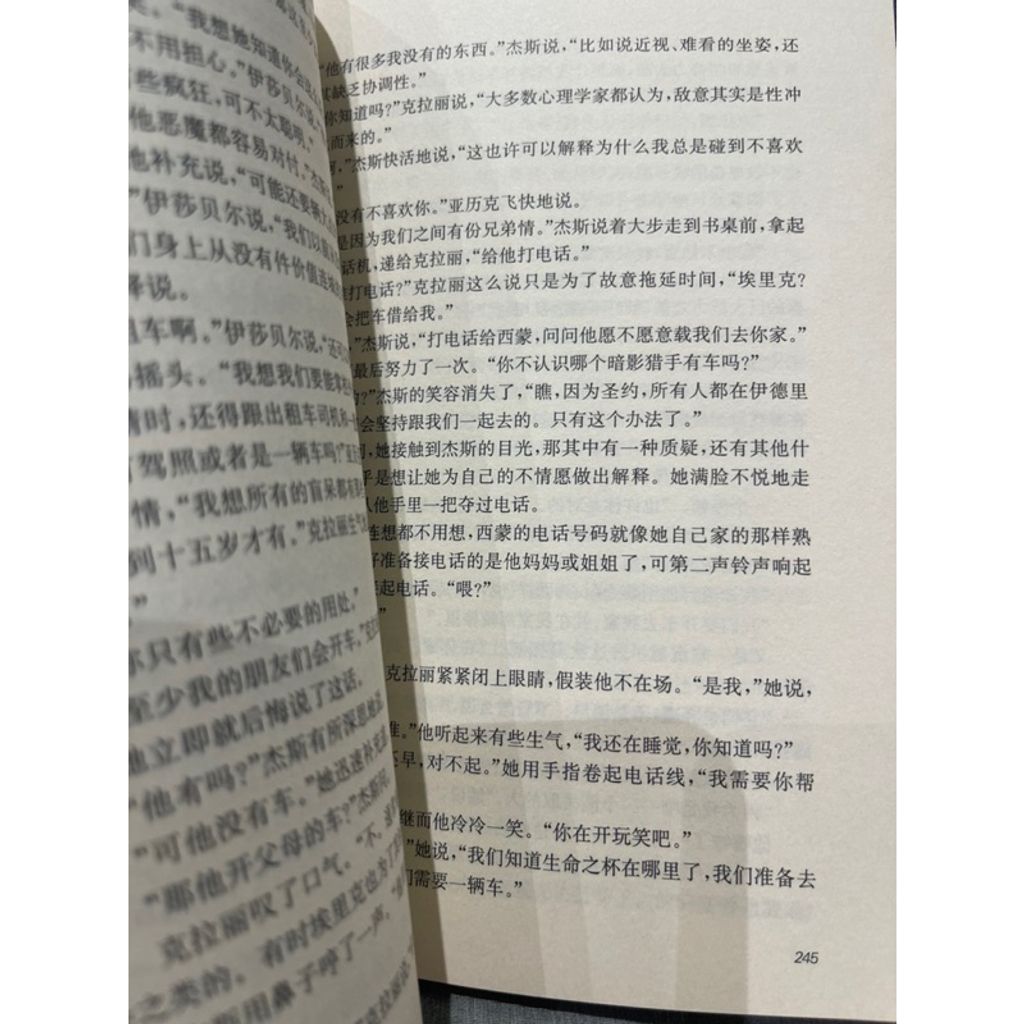 “我想她知道你会
不用担心。”伊莎贝尔说，
些疯狂，可不太聪明。”
他恶魔都容易对付。”杰斯
他补充说，“可能还要
”伊莎贝尔说，“我们以
们身上从没有件价值连城
释说。
租车啊。”伊莎贝尔说，“还
摇头。“我想我们要能
情时，还得跟出租车司机和
驾照或者是一辆车吗？”亚
情，“我想所有的盲呆都有
到十五岁才有。”克拉丽生气
”
你只有些不必要的用处。”
至少我的朋友们会开车。”克
她立即就后悔说了这话。
“他有吗？”杰斯有所深思地
“可他没有车。”她迅速补充
“那他开父母的车？”杰斯问。
克拉丽叹了口气。“不。
之类的。有时埃里克也为了
斯用鼻子哼了一声。
“他有很多我没有的东西。”杰斯说，“比如说近视、难看的坐姿，还
其缺乏协调性。”
你知道吗？”克拉丽说，“大多数心理学家都认为，敌意其实是性冲
而来的。”
啊，”杰斯快活地说，“这也许可以解释为什么我总是碰到不喜欢
”
没有不喜欢你。”亚历克飞快地说。
是因为我们之间有份兄弟情。”杰斯说着大步走到书桌前，拿起
话机，递给克拉丽，“给他打电话。”
打电话？”克拉丽这么说只是为了故意拖延时间，“埃里克？
会把车借给我。”
”杰斯说，“打电话给西蒙，问问他愿不愿意载我们去你家。”
最后努力了一次。“你不认识哪个暗影猎手有车吗？”
”杰斯的笑容消失了，“瞧，因为圣约，所有人都在伊德里
会坚持跟我们一起去的。只有这个办法了。”
，她接触到杰斯的目光，那其中有一种质疑，还有其他什
乎是想让她为自己的不情愿做出解释。她满脸不悦地走
从他手里一把夺过电话。
连想都不用想，西蒙的电话号码就像她自己家的那样熟
好准备接电话的是他妈妈或姐姐了，可第二声铃声响起
起电话。“喂？”
”
克拉丽紧紧闭上眼睛，假装他不在场。“是我，”她说，
谁。”他听起来有些生气，“我还在睡觉，你知道吗？”
还早，对不起。”她用手指卷起电话线，“我需要你帮
继而他冷冷一笑。“你在开玩笑吧。”
”她说，“我们知道生命之杯在哪里了，我们准备去
们需要一辆车。”
245